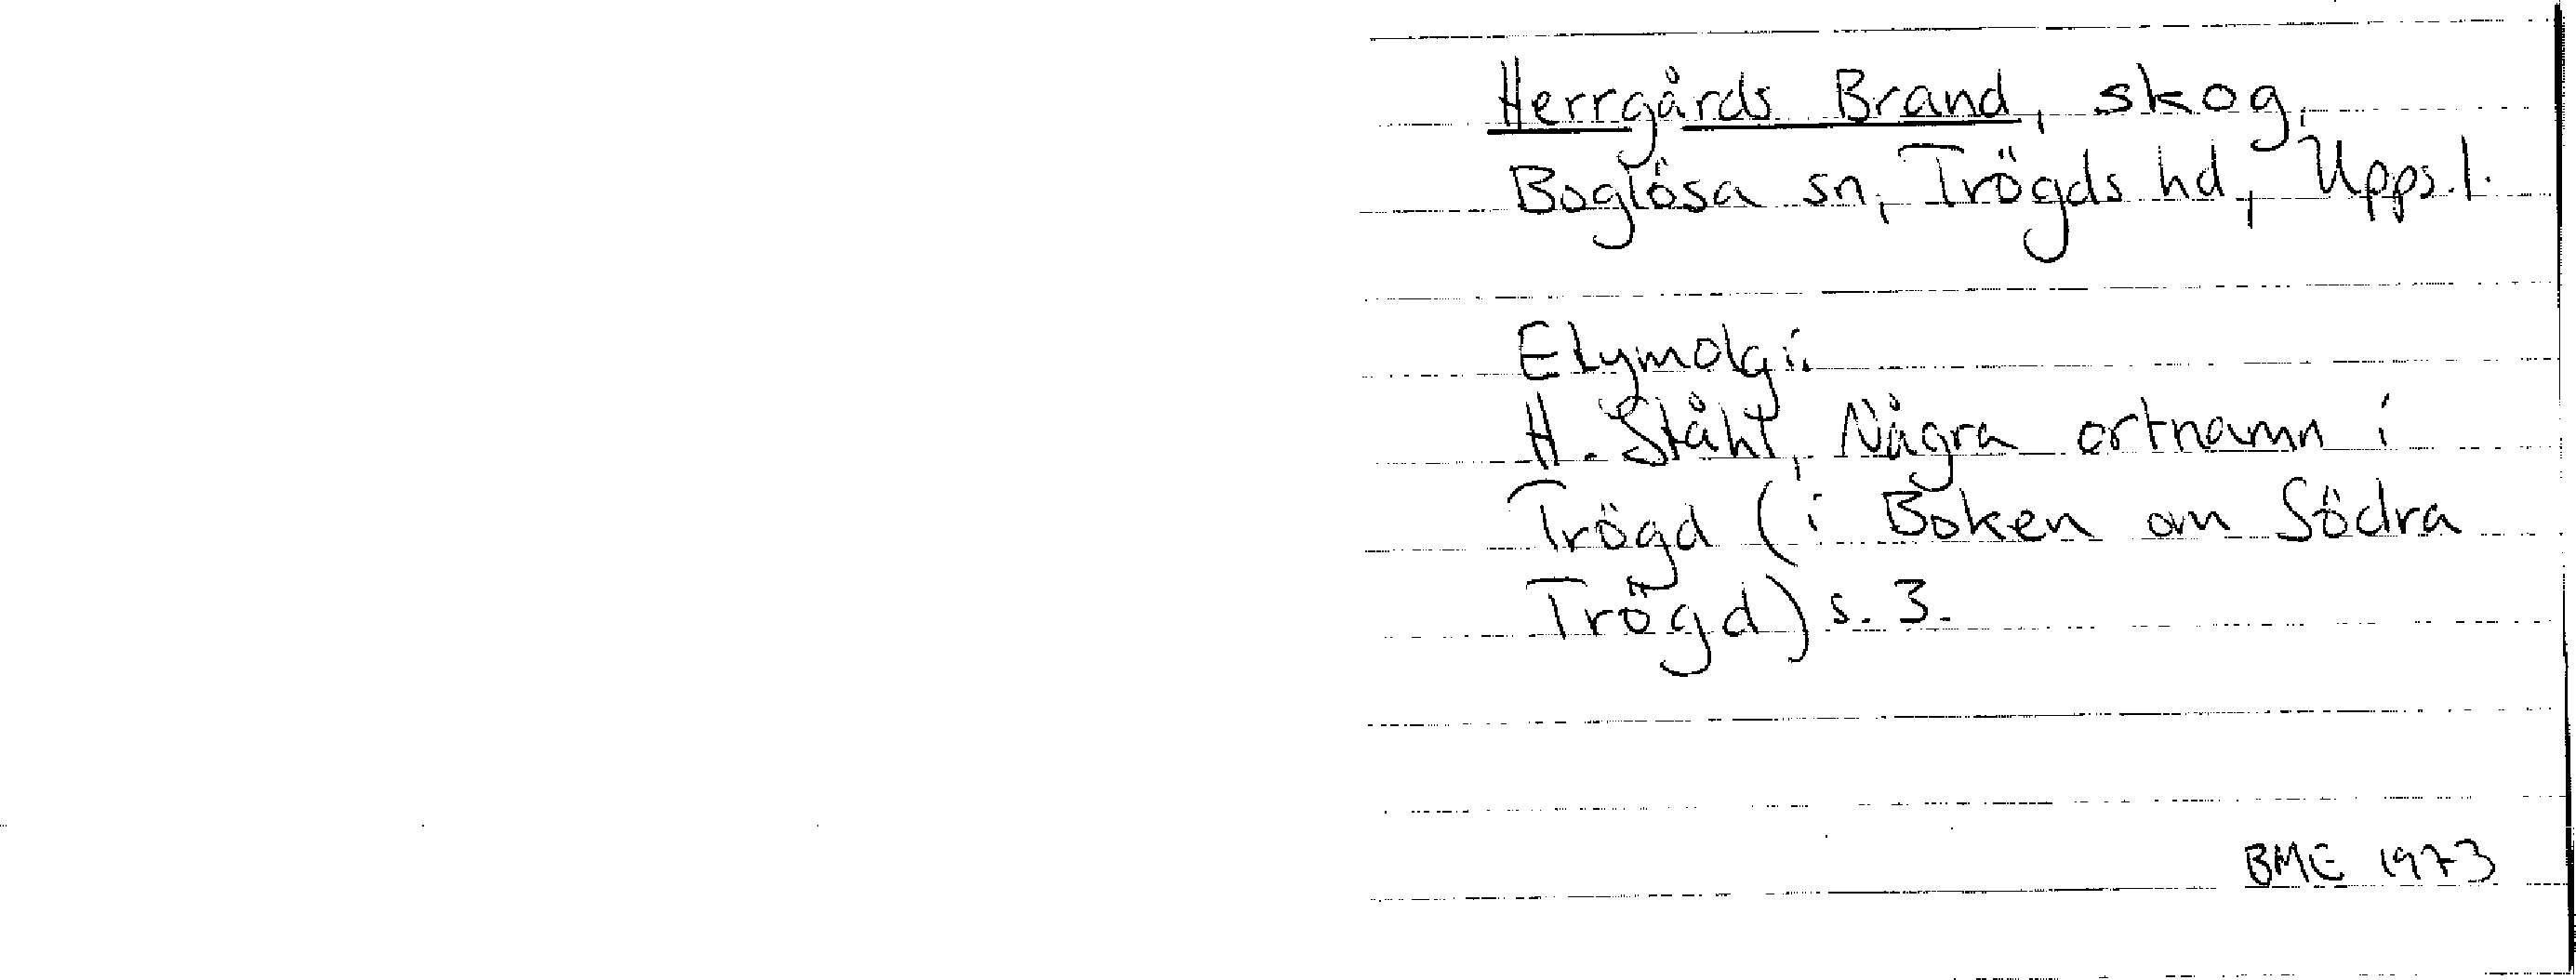 Herrgårds Brand, skog,
Boglösa sn, Trögds hd, Upps. l.
Etymolgi.
H. Ståhl, Några ortnamn i
Trögd (i Boken om Södra
Trögd) s. 3.
BME 1973